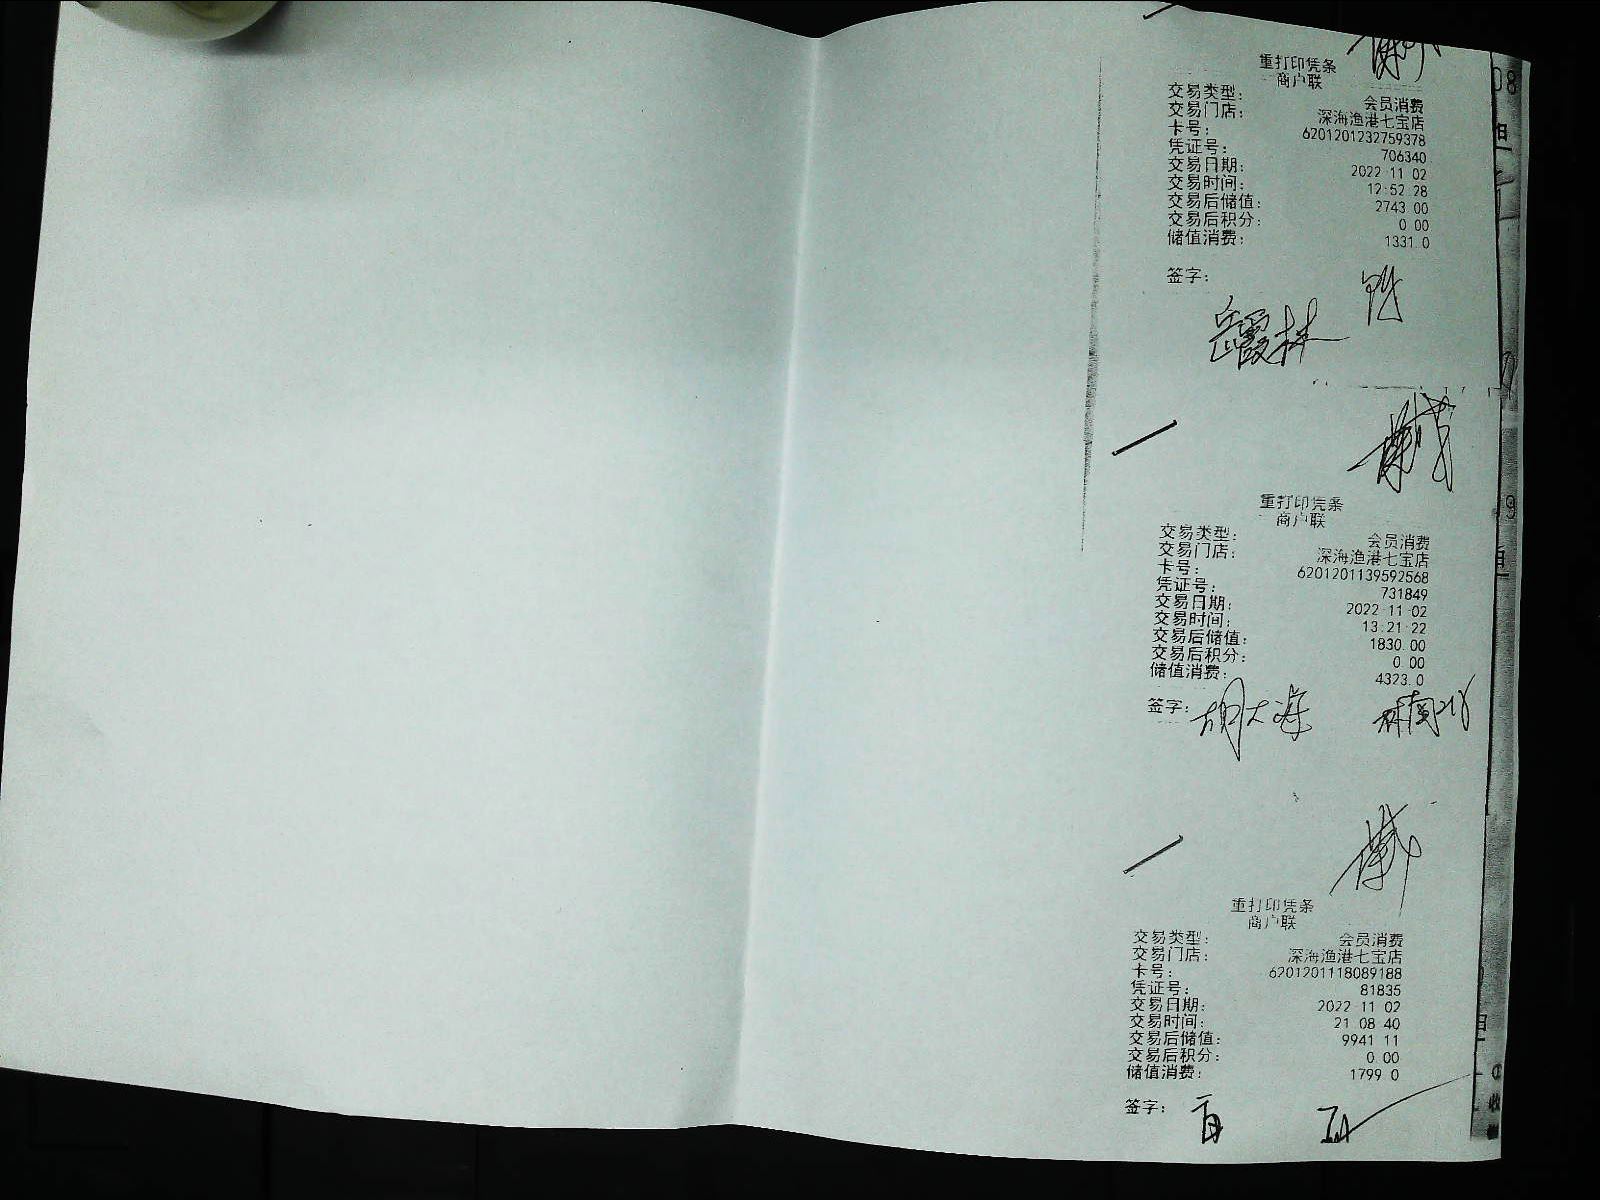 重打印凭条
商户联
交易类型： 会员消费
交易门店： 深海渔港七宝店
卡号： 6201201232759378
凭证号： 706340
交易日期： 2022-11-02
交易时间： 12:52:28
交易后储值： 2743.00
交易后积分： 0.00
储值消费： 1331.0
签字：
岳霞林
重打印凭条
商户联
交易类型： 会员消费
交易门店： 深海渔港七宝店
卡号： 6201201139592568
凭证号： 731849
交易日期： 2022-11-02
交易时间： 13:21:22
交易后储值： 1830.00
交易后积分： 0.00
储值消费： 4323.0
签字： 胡大海
重打印凭条
商户联
交易类型： 会员消费
交易门店： 深海渔港七宝店
卡号： 6201201118089188
凭证号： 81835
交易日期： 2022-11-02
交易时间： 21:08:40
交易后储值： 9941.11
交易后积分： 0.00
储值消费： 1799.0
签字：